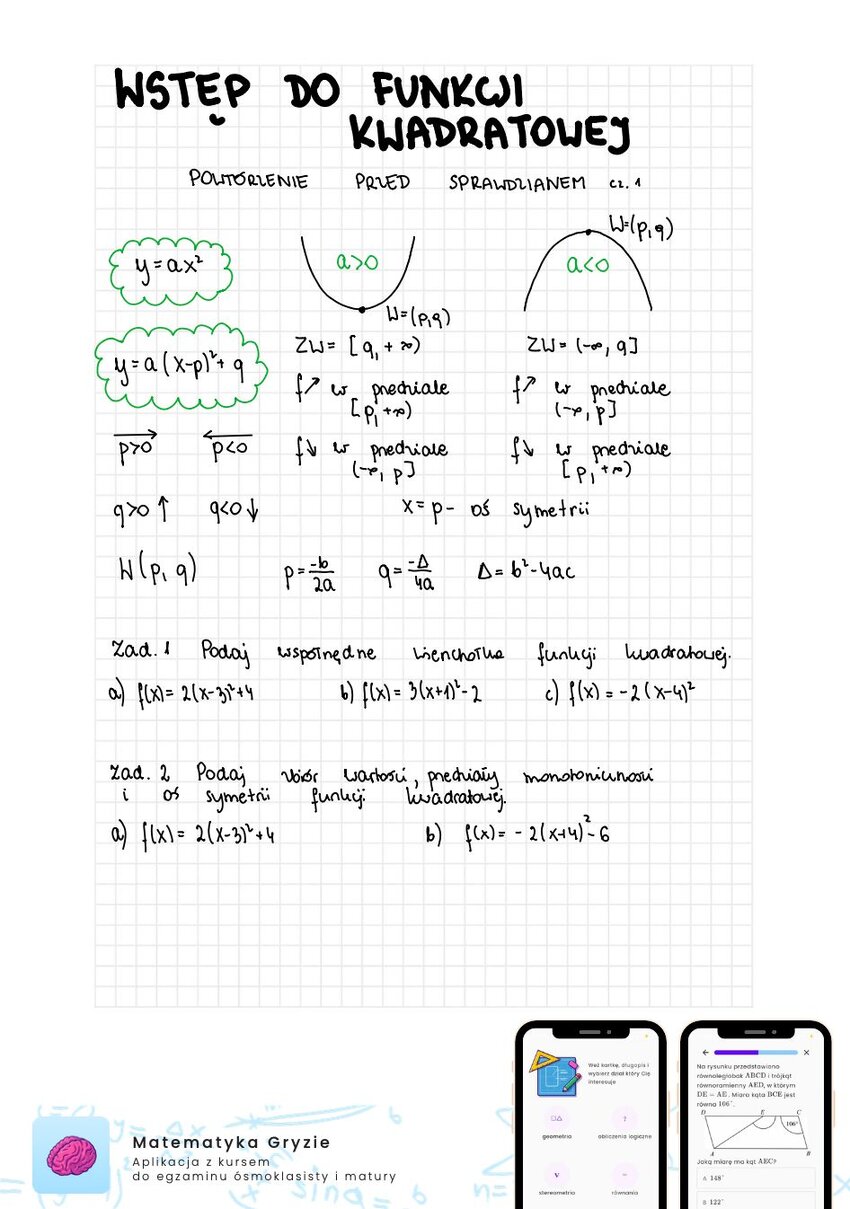 WSTĘP DO FUNKCJI
KWADRATOWEJ
POWTÓRZENIE PRZED SPRAWDZIANEM cz. 1
y = ax²
a>0
W=(p,q)
a<0
W=(p,q)
y = a(x-p)²+q
ZW= [q, +∞)
ZW= (-∞, q]
f↗ w przedziale
[p, +∞)
f↗ w przedziale
(-∞, p]
p>0 p<0
f↘ w przedziale
(-∞, p]
f↘ w przedziale
[p, +∞)
q>0 ↑ q<0 ↓
x = p - oś symetrii
W(p, q) p = -b/2a q = -Δ/4a Δ = b²-4ac
Zad. 1 Podaj współrzędne wierzchołka funkcji kwadratowej.
a) f(x) = 2(x-3)²+4 b) f(x) = 3(x+1)²-2 c) f(x) = -2(x-4)²
Zad. 2 Podaj zbiór wartości, przedziały monotoniczności
i oś symetrii funkcji kwadratowej.
a) f(x) = 2(x-3)²+4 b) f(x) = -2(x+4)²-6
Matematyka Gryzie
Aplikacja z kursem
do egzaminu ósmoklasisty i matury
Weź kartkę, długopis i
wybierz dział który Cię
interesuje
geometria obliczenia logiczne
stereometria równania
Na rysunku przedstawiono
równoległobok ABCD i trójkąt
równoramienny AED, w którym
DE = AE. Miara kąta BCE jest
równa 106°.
D E C
106°
A B
Jaką miarę ma kąt AEC?
A 148°
B 122°